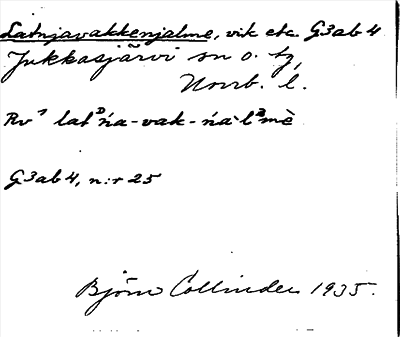 Latnjavakkenjalme, vik etc. G3ab4
Jukkasjärvi sn o. tg,
Norrb. l.
Rv¹ latᴰńa-vak-ńàlᵊmè
G3ab4, n:r 25
Björn Collinder 1935.